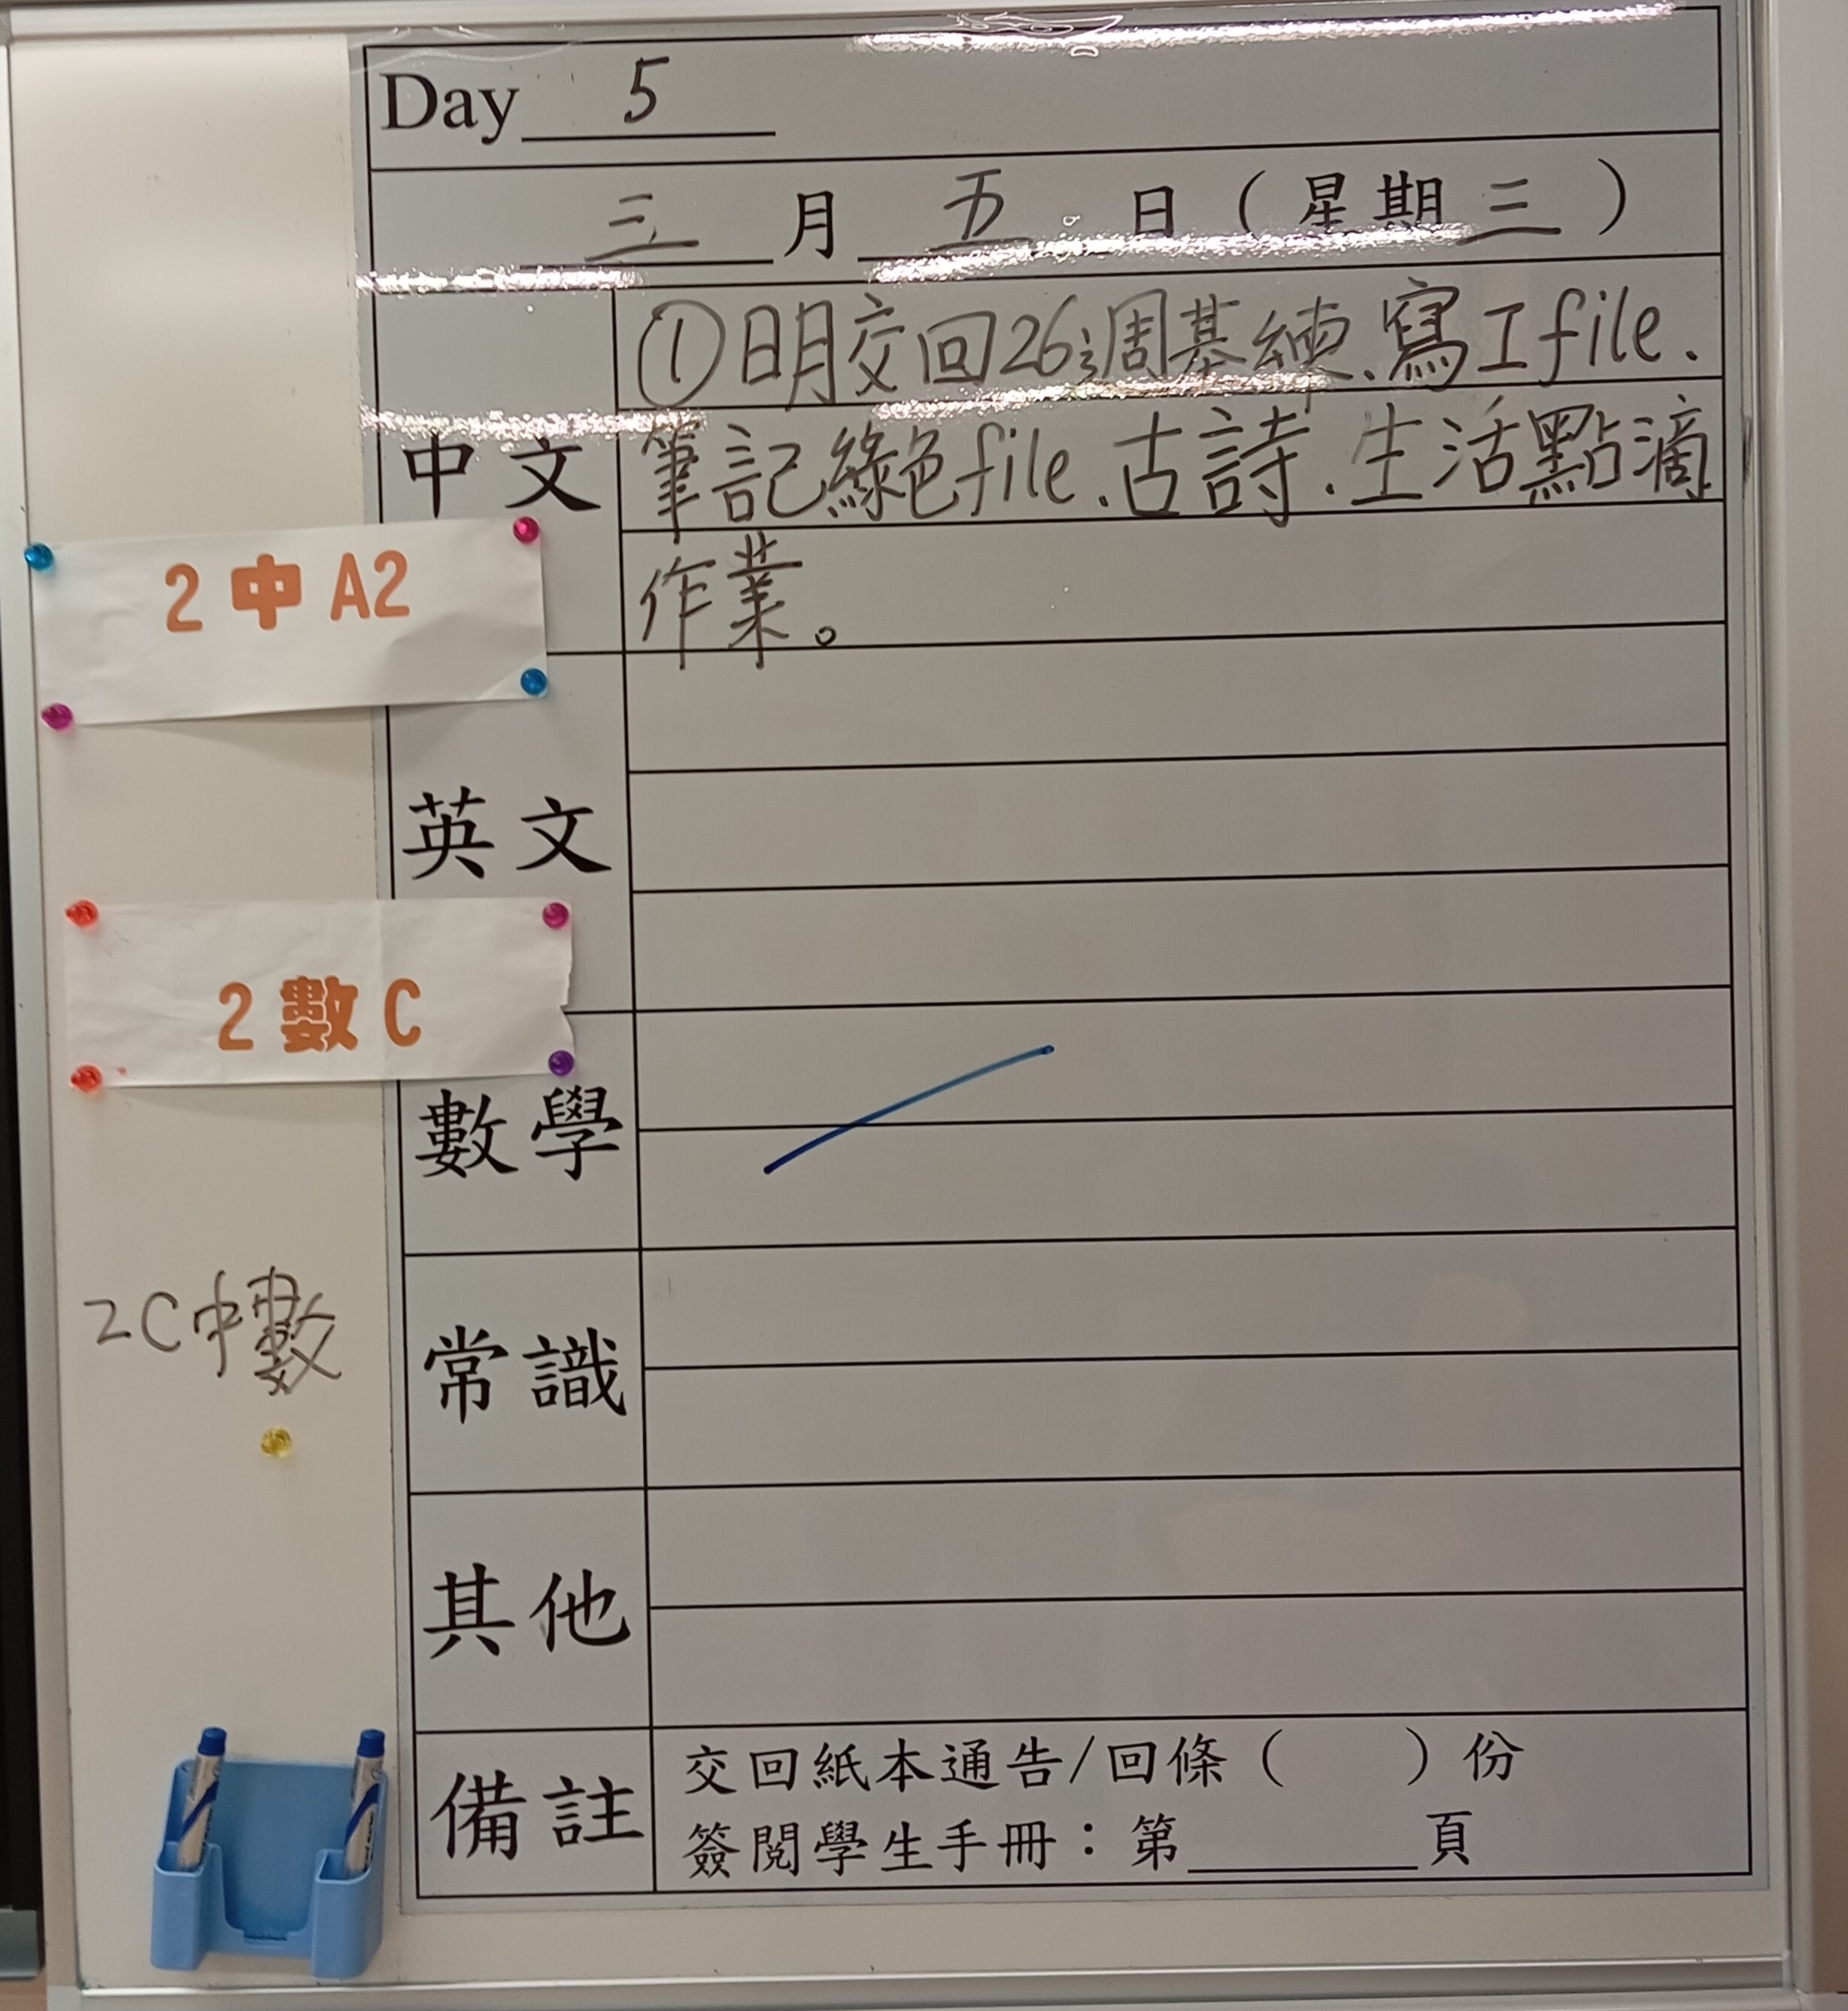 Day 5
三 月 五 日 ( 星期 三 )
①明交回26週基練、寫工file、
中文
筆記綠色file、古詩、生活點滴
作業。
2 中 A2
英文
2 數 C
數學
2C中數
常識
其他
備註
交回紙本通告/回條 ( ) 份
簽閱學生手冊：第______頁